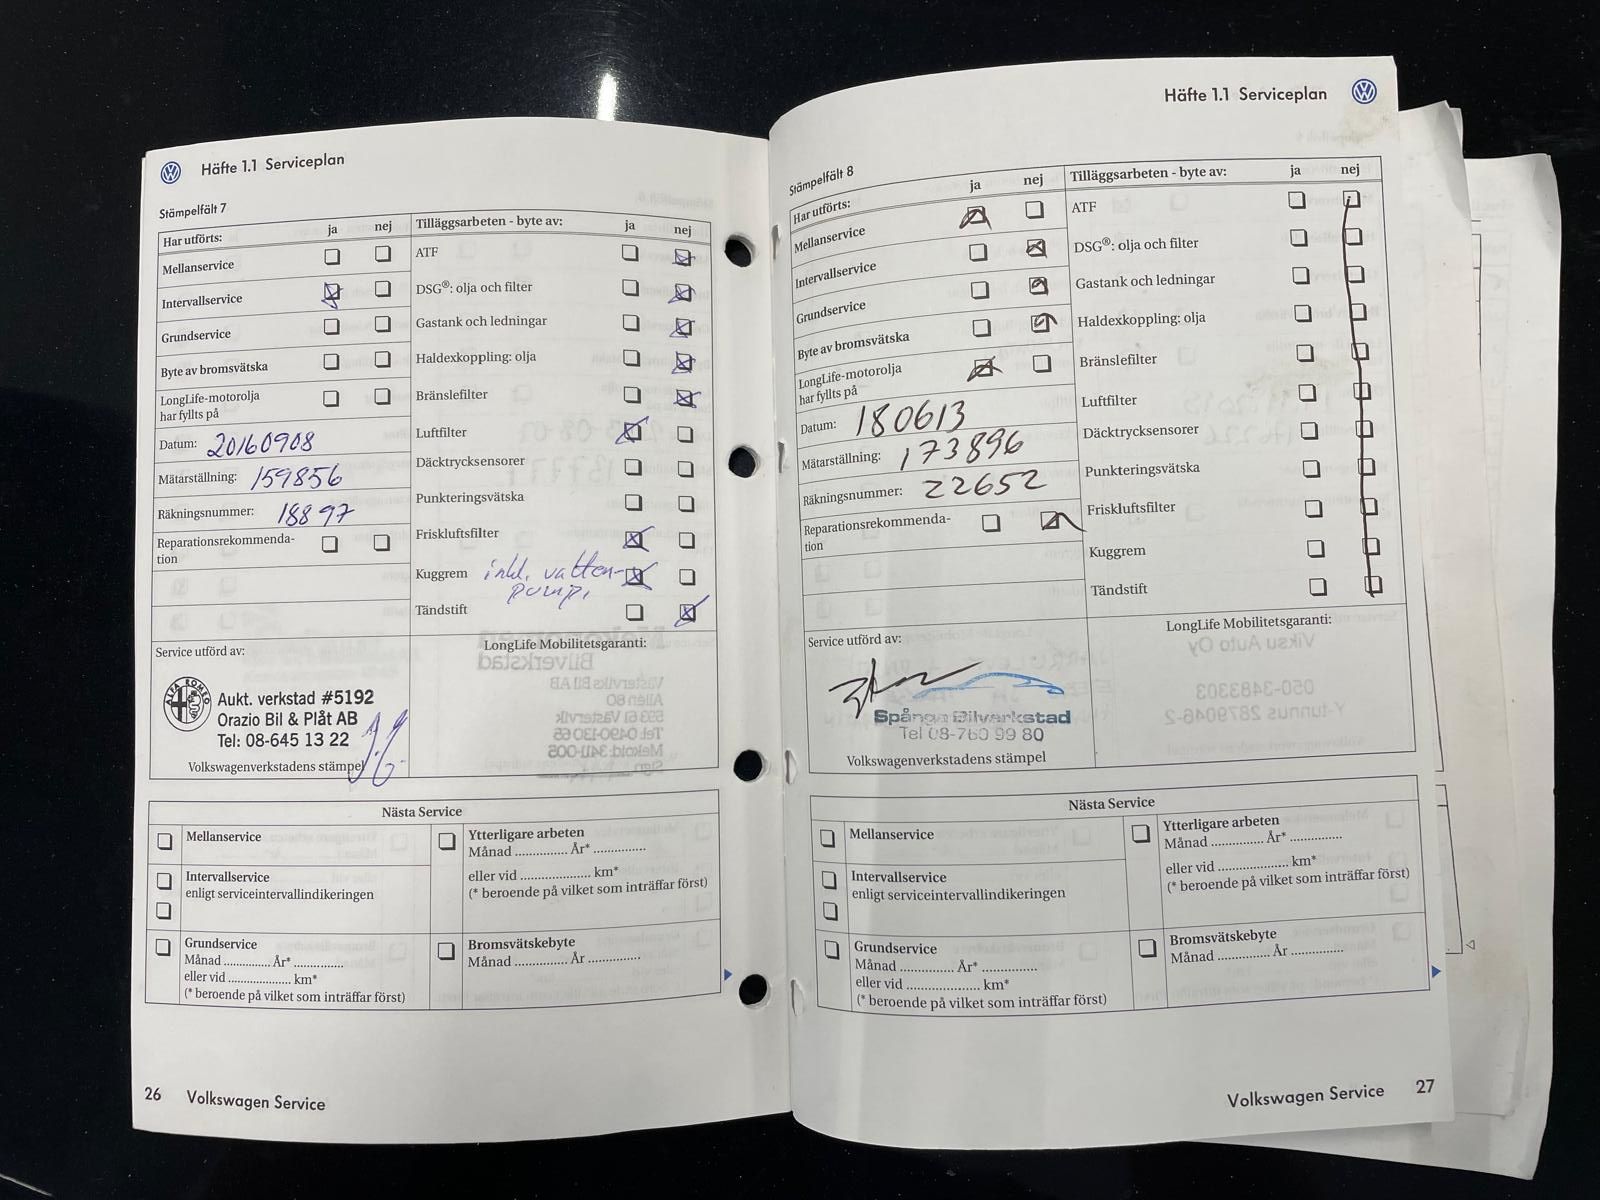 Häfte 1.1 Serviceplan
Stämpelfält 7
Har utförts: ja nej
Mellanservice
Intervallservice
Grundservice
Byte av bromsvätska
LongLife-motorolja
har fyllts på
Datum: 20160908
Mätarställning: 159856
Räkningsnummer: 18897
Reparationsrekommenda-
tion
Tilläggsarbeten - byte av: ja nej
ATF
DSG®: olja och filter
Gastank och ledningar
Haldexkoppling: olja
Bränslefilter
Luftfilter
Däcktrycksensorer
Punkteringsvätska
Friskluftsfilter
Kuggrem inkl. vatten-
pump.
Tändstift
Service utförd av:
ALFA ROMEO
Aukt. verkstad #5192
Orazio Bil & Plåt AB
Tel: 08-645 13 22
Volkswagenverkstadens stämpel
LongLife Mobilitetsgaranti:
Nästa Service
Mellanservice
Intervallservice
enligt serviceintervallindikeringen
Grundservice
Månad .............. År* ..............
eller vid .................... km*
(* beroende på vilket som inträffar först)
Ytterligare arbeten
Månad .............. År* ..............
eller vid .................... km*
(* beroende på vilket som inträffar först)
Bromsvätskebyte
Månad .............. År ..............
26 Volkswagen Service
Häfte 1.1 Serviceplan
Stämpelfält 8
Har utförts: ja nej
Mellanservice
Intervallservice
Grundservice
Byte av bromsvätska
LongLife-motorolja
har fyllts på
Datum: 180613
Mätarställning: 173896
Räkningsnummer: 22652
Reparationsrekommenda-
tion
Tilläggsarbeten - byte av: ja nej
ATF
DSG®: olja och filter
Gastank och ledningar
Haldexkoppling: olja
Bränslefilter
Luftfilter
Däcktrycksensorer
Punkteringsvätska
Friskluftsfilter
Kuggrem
Tändstift
Service utförd av:
Spånga Bilverkstad
Tel 08-760 99 80
Volkswagenverkstadens stämpel
LongLife Mobilitetsgaranti:
Nästa Service
Mellanservice
Intervallservice
enligt serviceintervallindikeringen
Grundservice
Månad .............. År* ..............
eller vid .................... km*
(* beroende på vilket som inträffar först)
Ytterligare arbeten
Månad .............. År* ..............
eller vid .................... km*
(* beroende på vilket som inträffar först)
Bromsvätskebyte
Månad .............. År ..............
Volkswagen Service 27